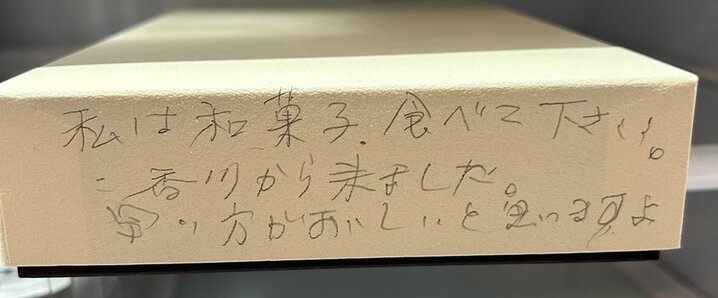 私は和菓子.食べて下さい。
香川から来ました。
早い方がおいしいと思いますよ